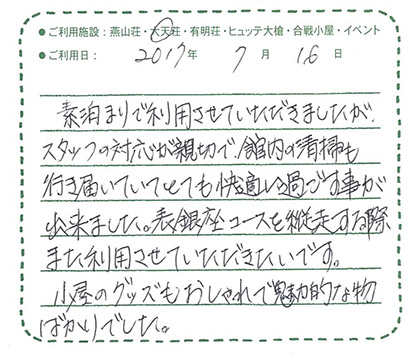 ●ご利用施設：燕山荘・大天荘・有明荘・ヒュッテ大槍・合戦小屋・イベント
●ご利用日： 2017年 7月 16日
素泊まりで利用させていただきましたが、
スタッフの対応が親切で、館内の清掃も
行き届いていてとても快適に過ごす事が
出来ました。表銀座コースを縦走する際
また利用させていただきたいです。
小屋のグッズもおしゃれで魅力的な物
ばかりでした。